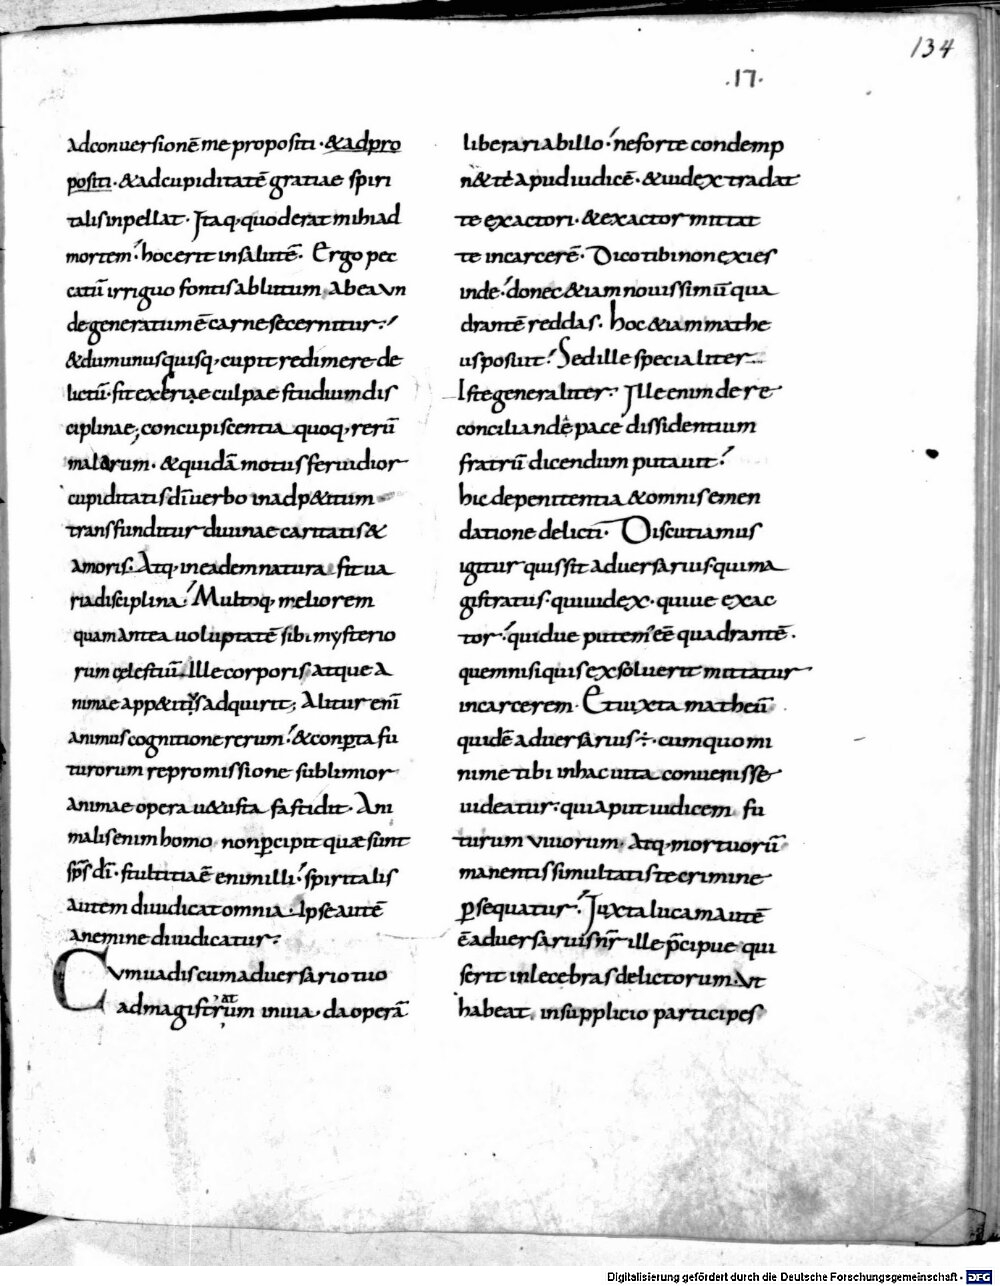 134
.17.
adconuersionē me propositi · &adpro
positi · &adcupiditatē gratiae spiri
talis inpellat · Itaq, quod erat mihi ad
mortem · hoc erit in salutē. Ergo pec
catū irriguo fontis ablutum, Ab ea un
de generatum ē carne secernitur:
&dum unusquisq, cupit redimere de
lictū · fit ex eriae culpae studium dis
ciplinae; concupiscentia quoq, rerū
malarum · &quidā motus feruidior
cupiditatis dī uerbo inadp&itum
transfunditur diuinae caritatis &
amoris. Atq, in eadem natura fit ua
ria disciplina. Multoq, meliorem
quam antea uoluptatē sibi mysterio
rum cęlestiū. Ille corporis atque a
nimae app&itus adquirit; Alitur enī
animus cognitione rerum · &conperta fu
turorum repromissione sublimior
animae opera u&usta fastidit · Ani
malis enim homo non percipit quae sunt
sps dī · stultitia ē enim illi · spiritalis
autem diiudicat omnia · Ipse autē
a nemine diiudicatur:
Cum uadis cum aduersario tuo
ad magistratum in uia, da operā
liberari ab illo · ne forte condemp
n& te apud iudicē · &iudex tradat
te exactori · &exactor mittat
te in carcerē · Dico tibi non exies
inde · donec &iam nouissimū qua
drantē reddas · hoc &iam mathe
us posuit · Sed ille specialiter
Iste generaliter · Ille enim de re
concilianda pace dissidentium
fratrū dicendum putauit ·
hic de penitentia &omnis emen
datione delicti · Discutiamus
igitur quis sit aduersarius · qui ma
gistratus · qui iudex · quiue exac
tor · quidue putem eē quadrantē ·
quem nisi quis exsoluerit mittatur
in carcerem · Et iuxta matheū
quidē aduersarius ÷ · cum quo mi
nime tibi in hac uita conuenisse
uideatur: qui aput iudicem fu
turum uiuorum · Atq, mortuorū
manentis simultatis te crimine
persequatur · Iuxta lucam autē
ē aduersarius nr ille pcipue qui
serit inlecebras delictorum · Ut
habeat in supplicio participes
Digitalisierung gefördert durch die Deutsche Forschungsgemeinschaft - DFG